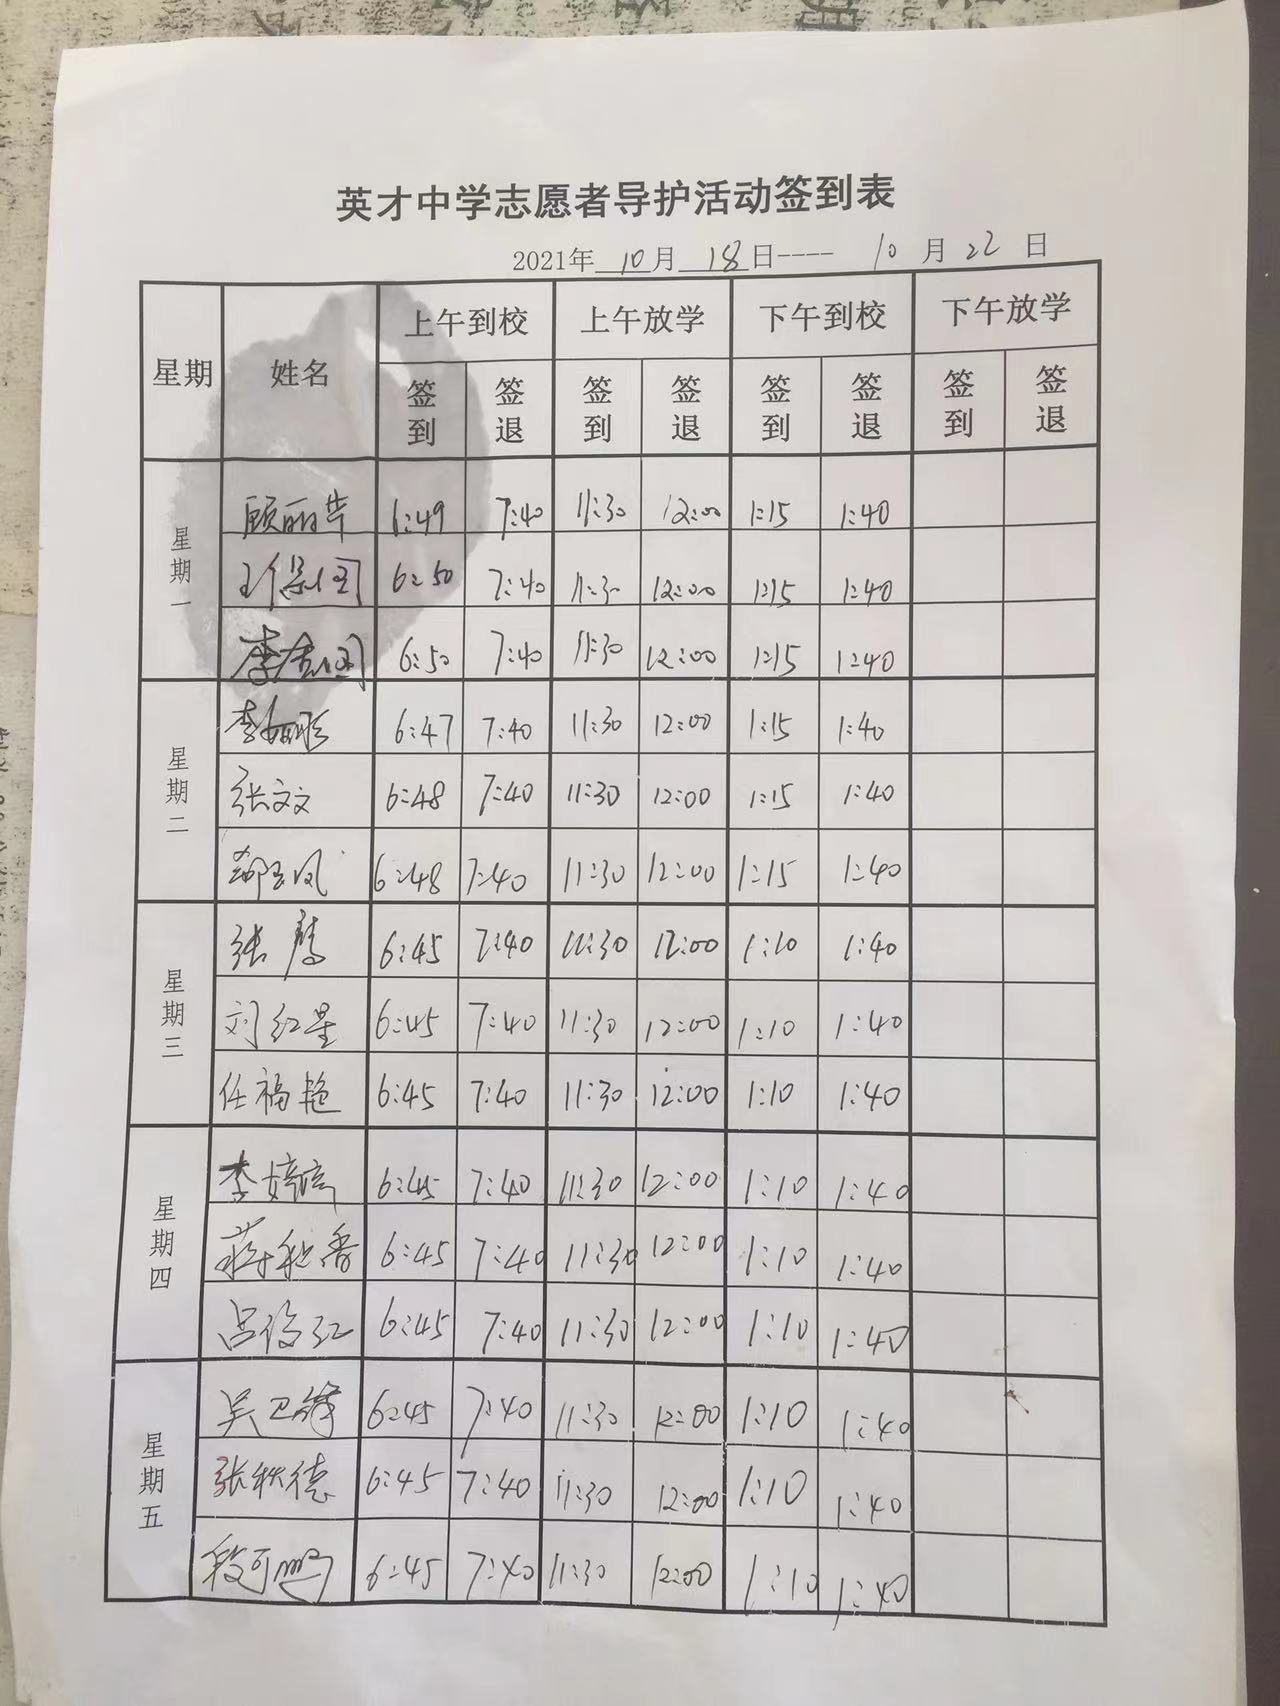 英才中学志愿者导护活动签到表
2021年 10月 18日---- 10月22日
星期 姓名 上午到校 上午放学 下午到校 下午放学
签到 签退 签到 签退 签到 签退 签到 签退
星期一
顾丽华 6:49 7:40 11:30 12:00 1:15 1:40
6:50 7:40 11:30 12:00 1:15 1:40
李 6:50 7:40 11:30 12:00 1:15 1:40
星期二
李 6:47 7:40 11:30 12:00 1:15 1:40
张文文 6:48 7:40 11:30 12:00 1:15 1:40
郝玉凤 6:48 7:40 11:30 12:00 1:15 1:40
星期三
张 6:45 7:40 11:30 12:00 1:10 1:40
刘红星 6:45 7:40 11:30 12:00 1:10 1:40
任福艳 6:45 7:40 11:30 12:00 1:10 1:40
星期四
李婷 6:45 7:40 11:30 12:00 1:10 1:40
蒋秋香 6:45 7:40 11:30 12:00 1:10 1:40
吕俊红 6:45 7:40 11:30 12:00 1:10 1:40
星期五
吴卫锋 6:45 7:40 11:30 12:00 1:10 1:40
张秋德 6:45 7:40 11:30 12:00 1:10 1:40
段可鹏 6:45 7:40 11:30 12:00 1:10 1:40